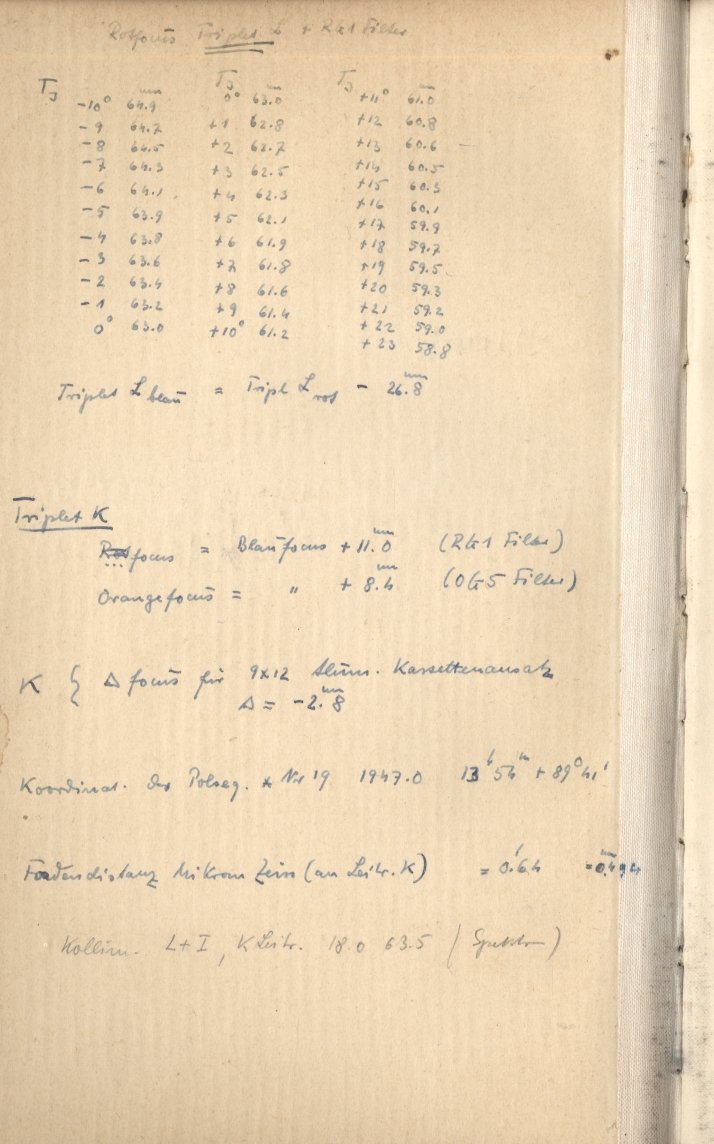 Rotfocus Triplet L + RG1 Filter
TJ mm TJ mm TJ mm
-10° 64.9 0° 63.0 +11° 61.0
-9 64.7 +1 62.8 +12 60.8
-8 64.5 +2 62.7 +13 60.6
-7 64.3 +3 62.5 +14 60.5
-6 64.1 +4 62.3 +15 60.3
-5 63.9 +5 62.1 +16 60.1
-4 63.8 +6 61.9 +17 59.9
-3 63.6 +7 61.8 +18 59.7
-2 63.4 +8 61.6 +19 59.5
-1 63.2 +9 61.4 +20 59.3
0° 63.0 +10° 61.2 +21 59.2
+22 59.0
+23 58.8
Triplet L blau = Tripl L rot - 26.8 mm
Triplet K
Rotfocus = Blaufocus + 11.0 mm (RG1 Filter)
Orangefocus = " + 8.4 mm (OG5 Filter)
K { Δ focus für 9x12 Alum. Kassettenansatz
Δ = -2.8 mm
Koordinat. der Polseq. * Nr 19 1947.0 13h 54m + 89° 41'
Fadendistanz Mikrom Zeiss (an Leitr. K) = 0.'64 = 0.494
Kollim. L+I, K Leitr. 18.0 63.5 (Spektr)